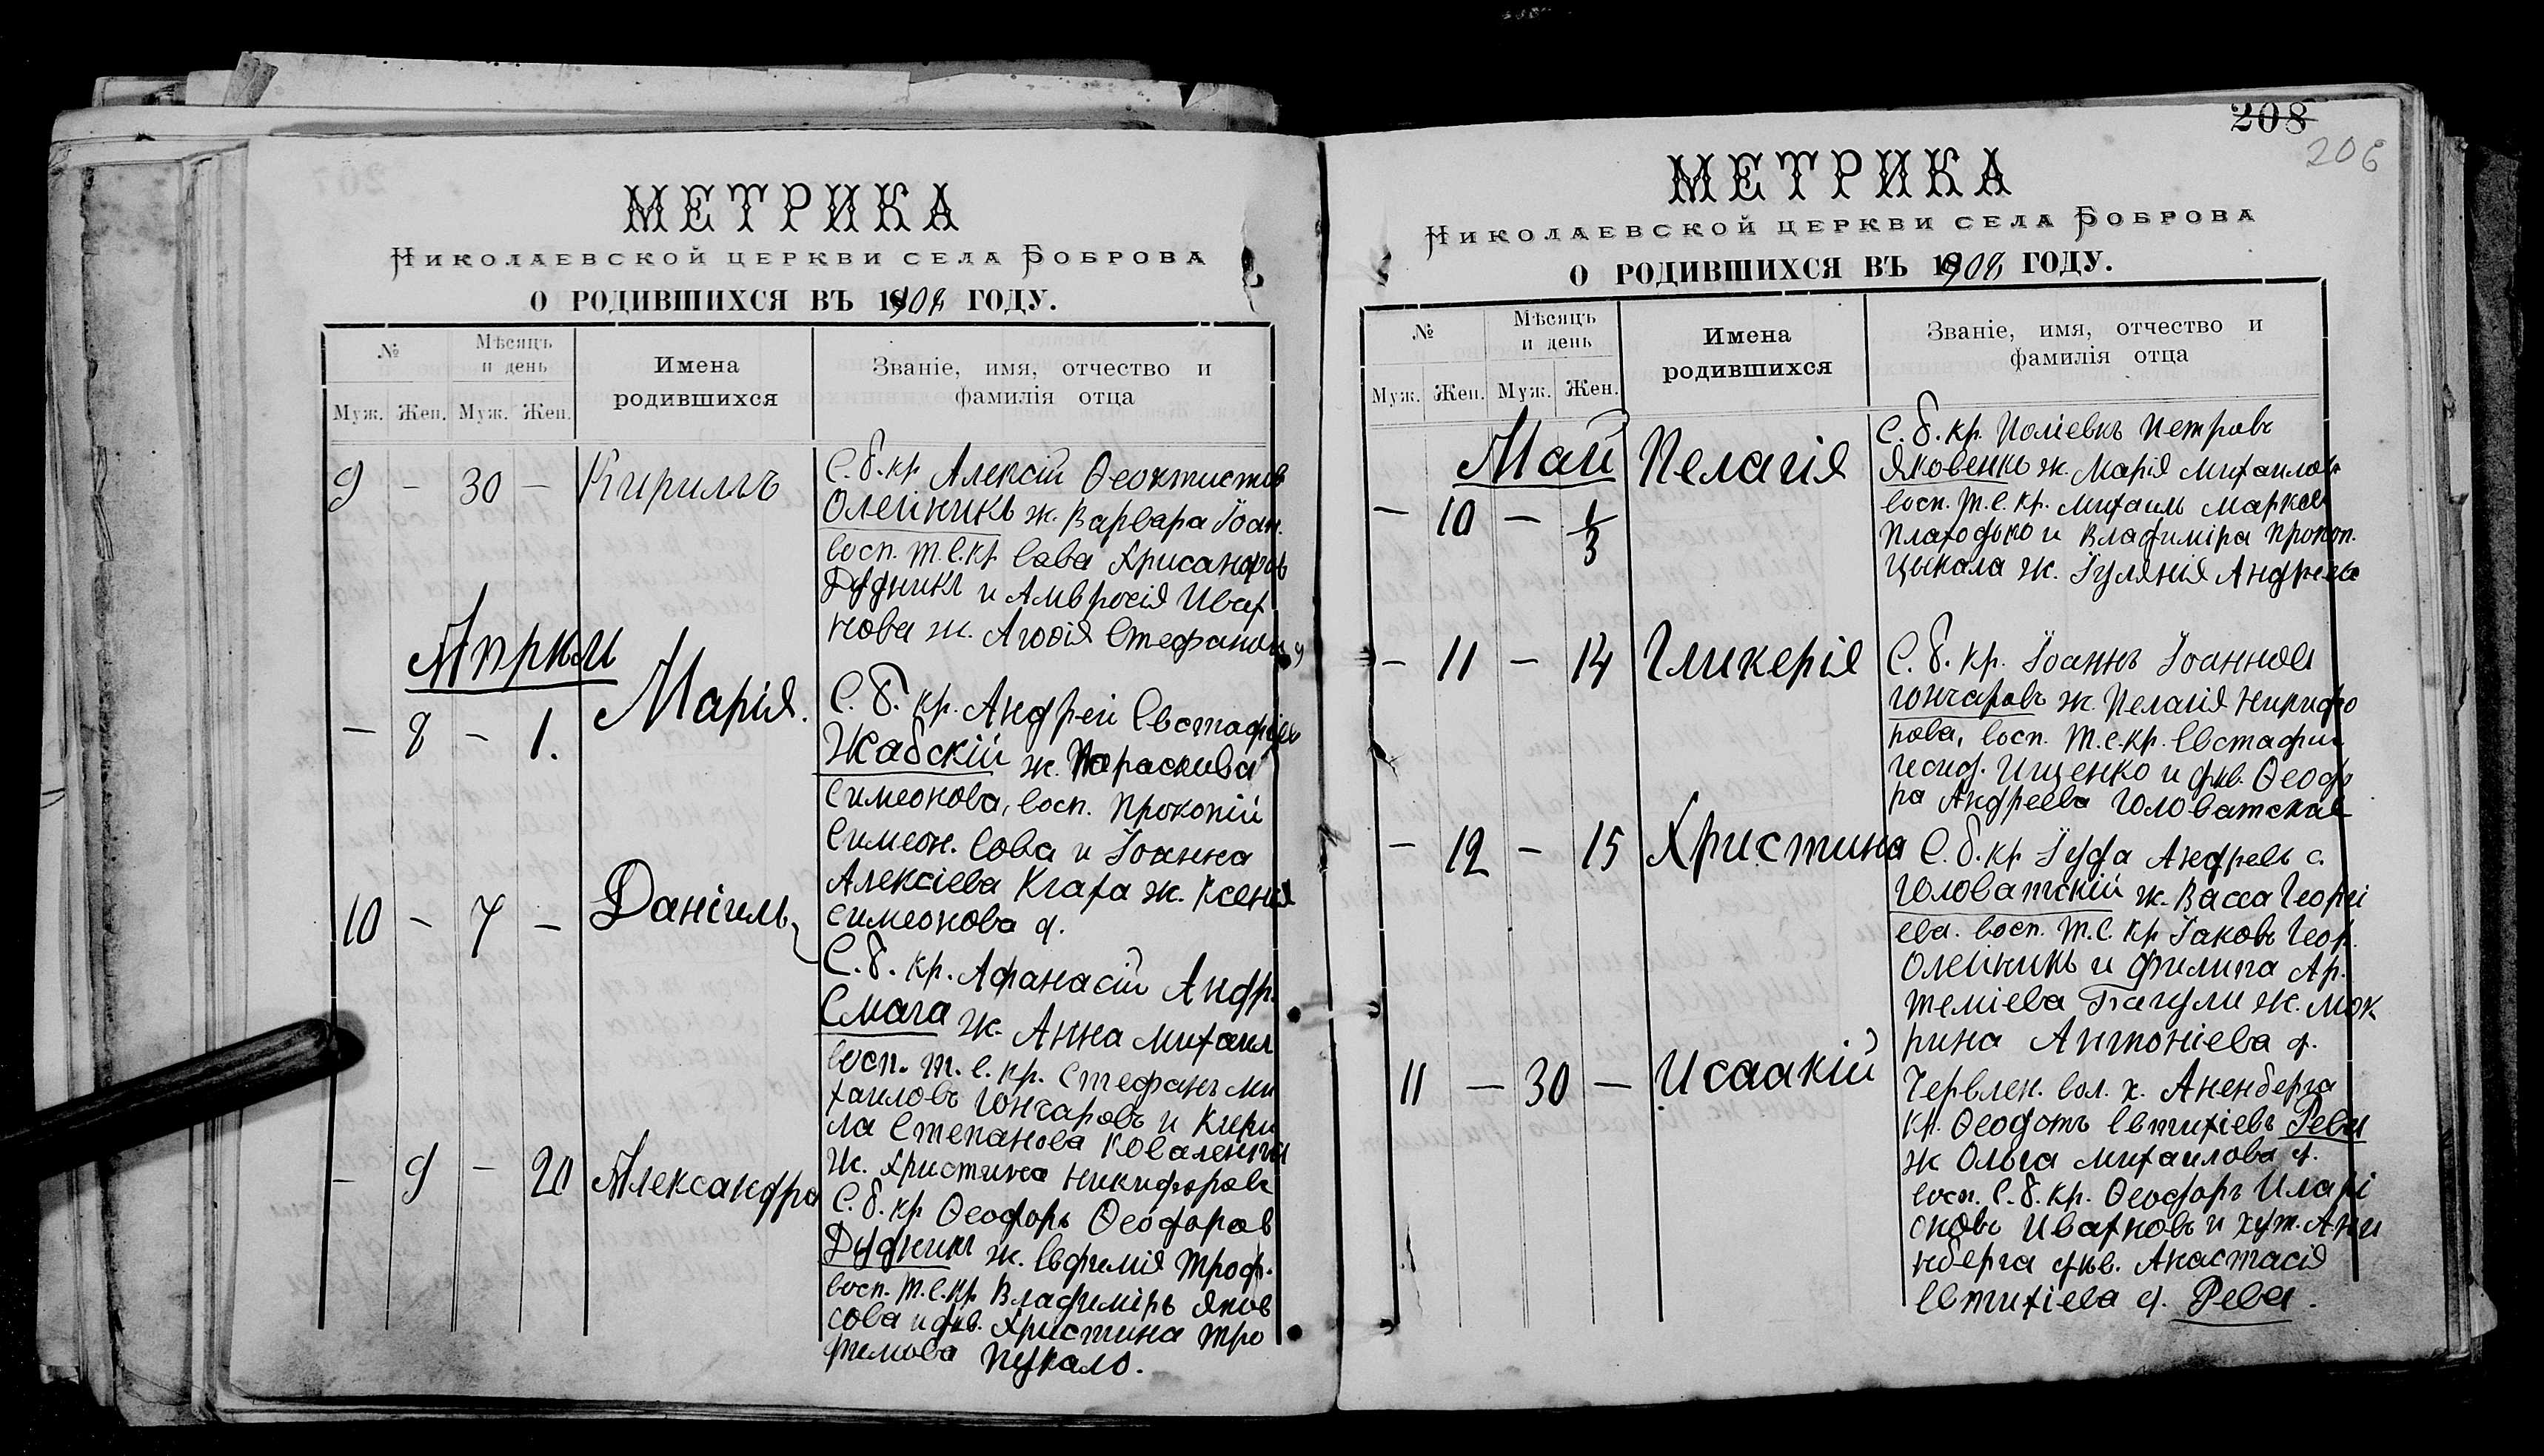 МЕТРИКА
Николаевской церкви села Боброва
О РОДИВШИХСЯ ВЪ 1908 ГОДУ.
№
Мѣсяцъ и день
Имена родившихся
Званіе, имя, отчество и фамилія отца
Муж. Жен. Муж. Жен.
9 – 30 – Кирилъ
С. б. кр Алексій Ѳеоктистов
Олейникъ ж. Варвара Іоан.
восп. т. с. кр Сава Хрисанфов
Дудникъ и Амвросія Иват
нова ж. Агафія Стефанова
Апрѣль
– 8 – 1. Марія.
С. б. кр. Андрей Евстафіев
Жабскій ж. Параскива
Симеонова, восп. Прокопій
Симеон. Сова и Іоанна
Алексіева Кгата ж. Ксенія
Симеонова д.
10 – 7 – Даніилъ
С. б. кр. Афанасій Андр.
Смага ж. Анна Михаил
восп. т. с. кр. Стефанъ Ми
хаиловъ Гончаровъ и Кири
ла Степанова Коваленка
ж. Христина Никифорова
– 9 – 20 Александра
С. б. кр Ѳеодоръ Ѳеодоров
Дудникъ ж. Евфимія Троф.
восп. т. с. кр Владиміръ Яков
Сова и дѣв. Христина Тро
фимова Пукало.
208
206
МЕТРИКА
Николаевской церкви села Боброва
О РОДИВШИХСЯ ВЪ 1908 ГОДУ.
№
Мѣсяцъ и день
Имена родившихся
Званіе, имя, отчество и фамилія отца
Муж. Жен. Муж. Жен.
Май
– 10 – 1/3 Пелагія
С. б. кр. Поліевкъ Петровъ
Яковенко ж. Марія Михаилов
восп. т. с. кр. Михаилъ Марков
Плаходько и Владиміра Прокоп.
Цыкала ж. Іулянія Андреева
– 11 – 14 Гликерія
С. б. кр. Іоаннъ Іоаннов
Гончаровъ ж. Пелагія Никифо
рова, восп. т. с. кр. Евстафій
Іосиф. Ищенко и дѣв. Ѳеодо
ра Андреева Головатская
– 12 – 15 Христина
С. б. кр Іуда Андреев с.
Головатскій ж. Васса Георгі
ева. восп. т. с. кр Іаковъ Геор.
Олейникъ и Филипа Ар.
теміева Багули ж. Мок
рина Антоніева д.
11 – 30 – Исаакій
Червлен. вол. х. Аненберга
кр. Ѳеодотъ Евтихіевъ Рева
ж Ольга Михаилова д.
восп. С. б. кр. Ѳеодоръ Иларі
оновъ Иватновъ и хут. Ане
нберга дѣв. Анастасія
Евтихіева д. Рева.